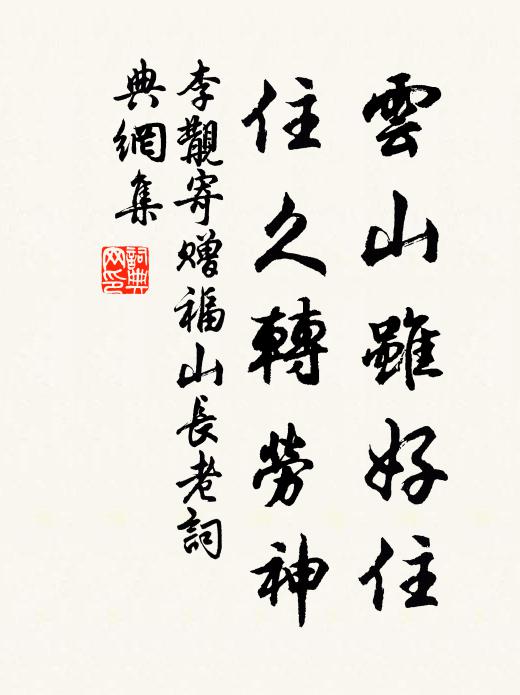 雲山雖好住
住久轉勞神
李覯寄贈福山長老詞
典網集
詞典网印